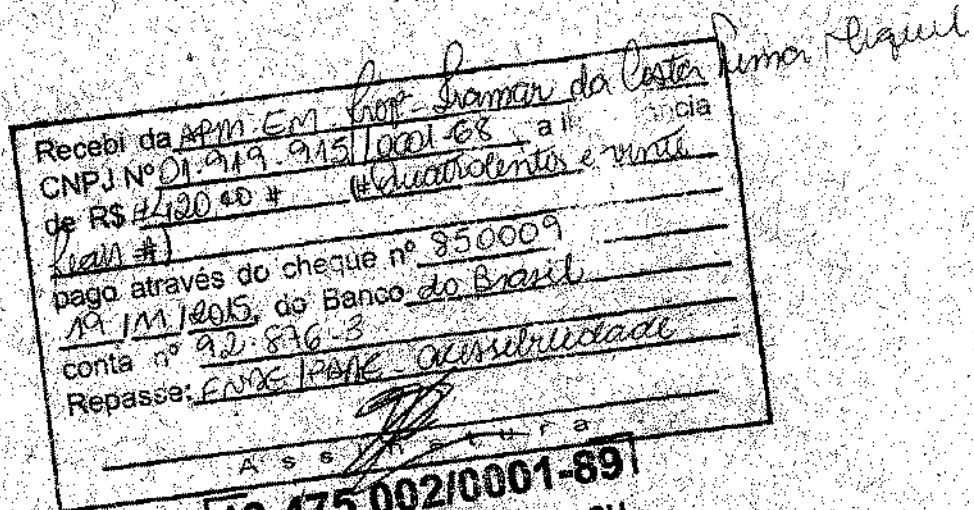 Recebi da APM-EM Profª Iramar da Costa Lima Miguel
CNPJ Nº 01.919.915/0001-68 , a i ncia
de R$ #420,00 # (#Quatrocentos e vinte
reais #)
pago através do cheque nº 850009
19/11/2015, do Banco do Brasil
conta nº 92.876-3
Repasse: FNDE/PDDE acessibilidade
Assinatura
.475.002/0001-89